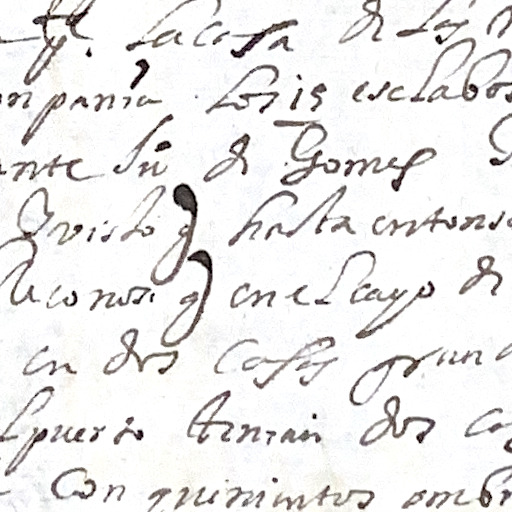 la casa de los
onpania los 15 esclabos
ante su de Gomes
Y visto q hasta entons
Reconose q en el cayo de
en dos casas grand
l puerto tenian dos ca
Con quinientos ombr